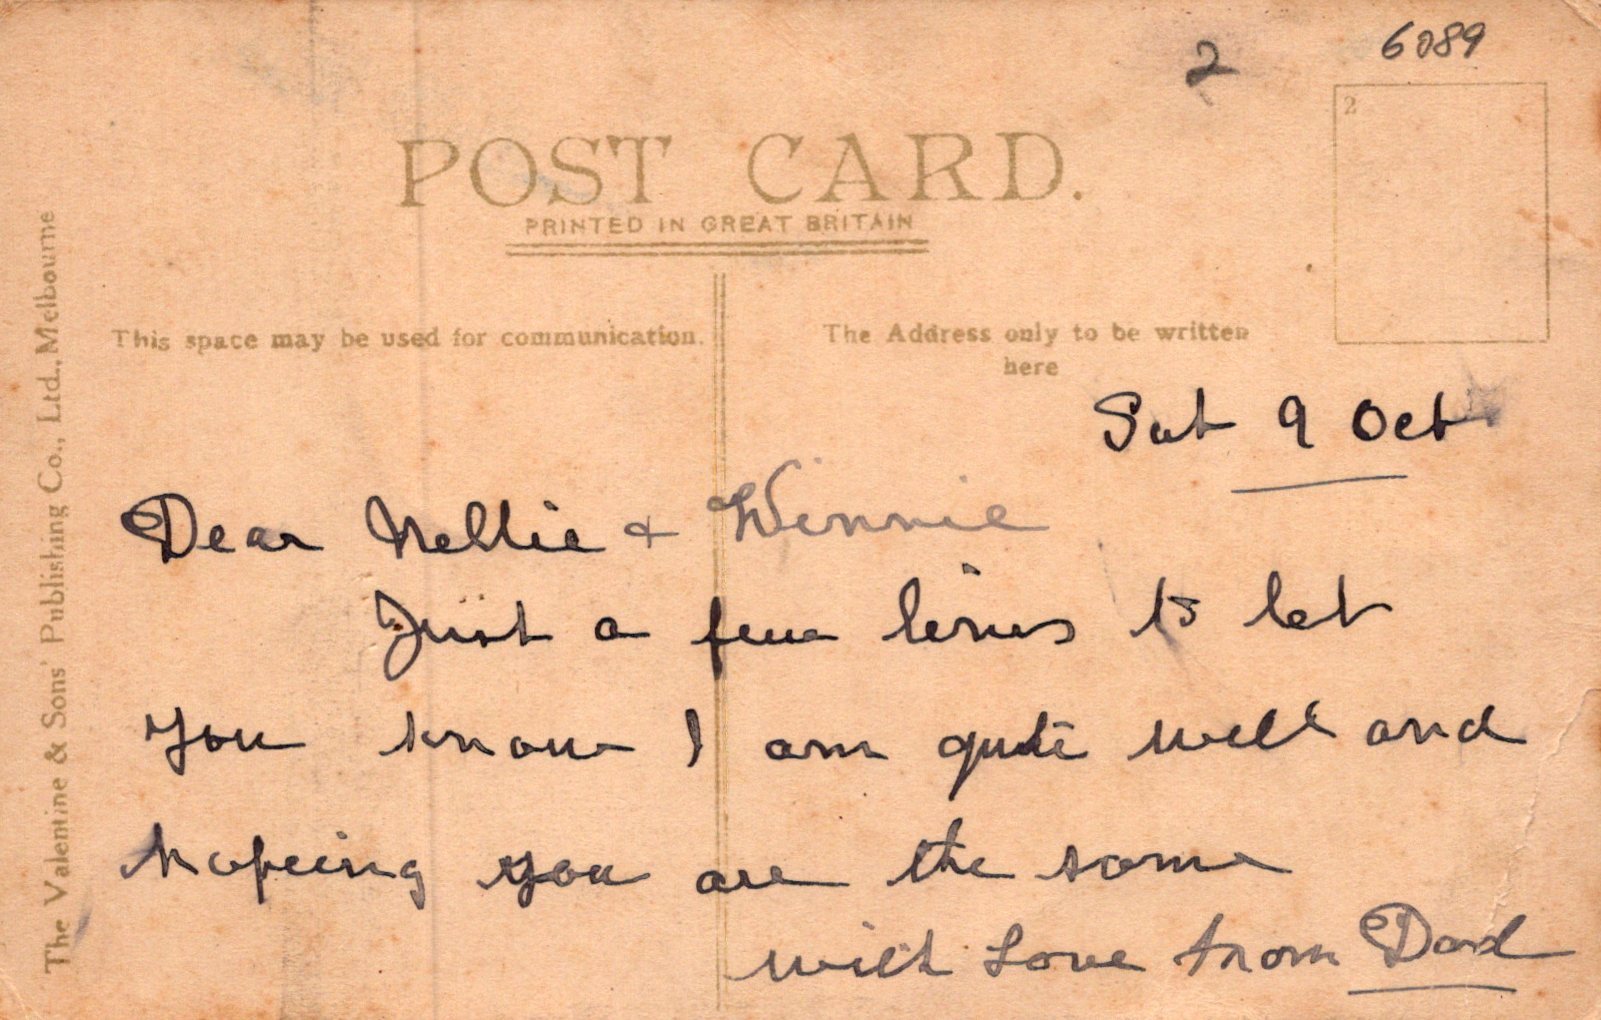 2 6089
2
POST CARD.
PRINTED IN GREAT BRITAIN
The Valentine & Sons' Publishing Co., Ltd., Melbourne
This space may be used for communication.
The Address only to be written
here
Sat 9 Oct
Dear Nellie + Winnie
Just a few lines to let
you know I am quite well and
hopeing you are the same
with Love from Dad